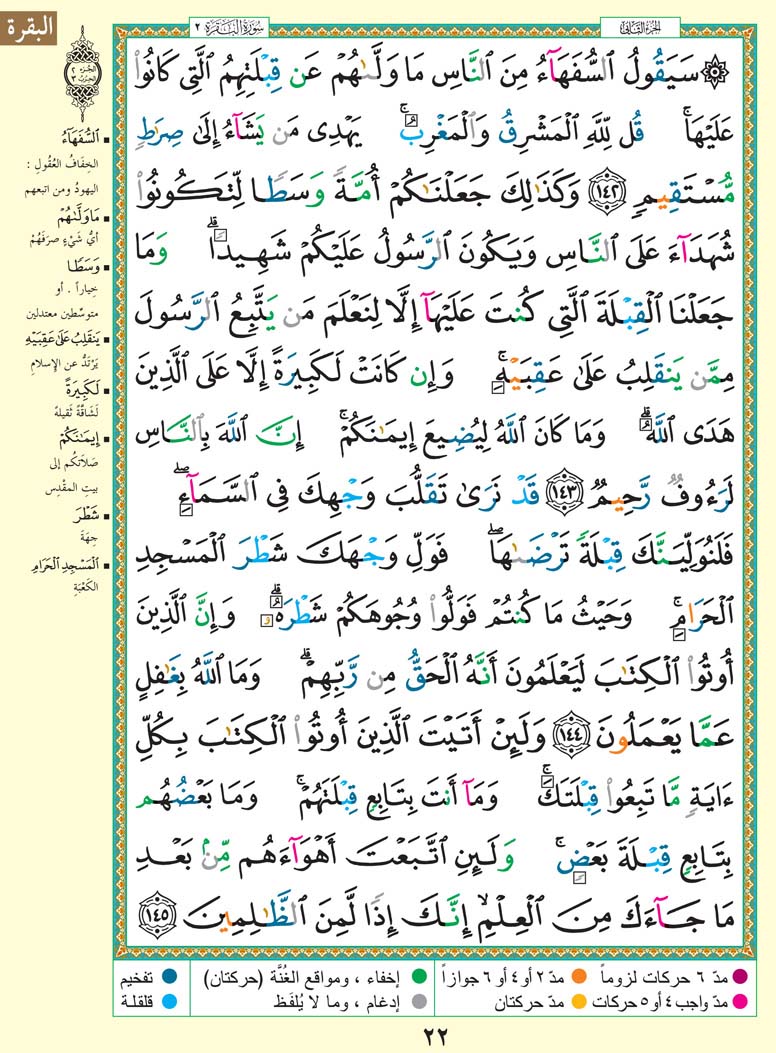 البقرة
سُورَةُ البَقَرَة ٢
الجُزءُ الثَّانِي
۞ سَيَقُولُ ٱلسُّفَهَآءُ مِنَ ٱلنَّاسِ مَا وَلَّىٰهُمْ عَن قِبْلَتِهِمُ ٱلَّتِى كَانُوا۟
عَلَيْهَا ۚ قُل لِّلَّهِ ٱلْمَشْرِقُ وَٱلْمَغْرِبُ ۚ يَهْدِى مَن يَشَآءُ إِلَىٰ صِرَٰطٍ
مُّسْتَقِيمٍ ١٤٢ وَكَذَٰلِكَ جَعَلْنَٰكُمْ أُمَّةً وَسَطًا لِّتَكُونُوا۟
شُهَدَآءَ عَلَى ٱلنَّاسِ وَيَكُونَ ٱلرَّسُولُ عَلَيْكُمْ شَهِيدًا ۗ وَمَا
جَعَلْنَا ٱلْقِبْلَةَ ٱلَّتِى كُنتَ عَلَيْهَآ إِلَّا لِنَعْلَمَ مَن يَتَّبِعُ ٱلرَّسُولَ
مِمَّن يَنقَلِبُ عَلَىٰ عَقِبَيْهِ ۚ وَإِن كَانَتْ لَكَبِيرَةً إِلَّا عَلَى ٱلَّذِينَ
هَدَى ٱللَّهُ ۗ وَمَا كَانَ ٱللَّهُ لِيُضِيعَ إِيمَٰنَكُمْ ۚ إِنَّ ٱللَّهَ بِٱلنَّاسِ
لَرَءُوفٌ رَّحِيمٌ ١٤٣ قَدْ نَرَىٰ تَقَلُّبَ وَجْهِكَ فِى ٱلسَّمَآءِ ۖ
فَلَنُوَلِّيَنَّكَ قِبْلَةً تَرْضَىٰهَا ۚ فَوَلِّ وَجْهَكَ شَطْرَ ٱلْمَسْجِدِ
ٱلْحَرَامِ ۚ وَحَيْثُ مَا كُنتُمْ فَوَلُّوا۟ وُجُوهَكُمْ شَطْرَهُۥ ۗ وَإِنَّ ٱلَّذِينَ
أُوتُوا۟ ٱلْكِتَٰبَ لَيَعْلَمُونَ أَنَّهُ ٱلْحَقُّ مِن رَّبِّهِمْ ۗ وَمَا ٱللَّهُ بِغَٰفِلٍ
عَمَّا يَعْمَلُونَ ١٤٤ وَلَئِنْ أَتَيْتَ ٱلَّذِينَ أُوتُوا۟ ٱلْكِتَٰبَ بِكُلِّ
ءَايَةٍ مَّا تَبِعُوا۟ قِبْلَتَكَ ۚ وَمَآ أَنتَ بِتَابِعٍ قِبْلَتَهُمْ ۚ وَمَا بَعْضُهُم
بِتَابِعٍ قِبْلَةَ بَعْضٍ ۚ وَلَئِنِ ٱتَّبَعْتَ أَهْوَآءَهُم مِّنۢ بَعْدِ
مَا جَآءَكَ مِنَ ٱلْعِلْمِ ۙ إِنَّكَ إِذًا لَّمِنَ ٱلظَّٰلِمِينَ ١٤٥
الجُزء ٢
الحِزب ٣
▪ ٱلسُّفَهَآءُ
الخِفَافُ العُقُولِ :
اليهودُ ومن اتبعهم
▪ مَا وَلَّىٰهُمْ
أيُّ شَيْءٍ صرَفَهُمْ
▪ وَسَطًا
خِياراً . أو
متوسِّطين معتدلين
▪ يَنقَلِبُ عَلَىٰ عَقِبَيْهِ
يَرْتَدُّ عن الإسلام
▪ لَكَبِيرَةً
لَشَاقَّةً ثَقيلةً
▪ إِيمَٰنَكُمْ
صَلاَتَكُم إلى
بيتِ المقْدِس
▪ شَطْرَ
جِهَةَ
▪ ٱلْمَسْجِدِ ٱلْحَرَامِ
الكَعْبَةِ
مدّ ٦ حركات لزوماً
مدّ ٢ أو ٤ أو ٦ جوازاً
إخفاء ، ومواقع الغُنَّة (حركتان)
تفخيم
مدّ واجب ٤ أو ٥ حركات
مدّ حركتان
إدغام ، وما لا يُلفَظ
قلقلة
٢٢